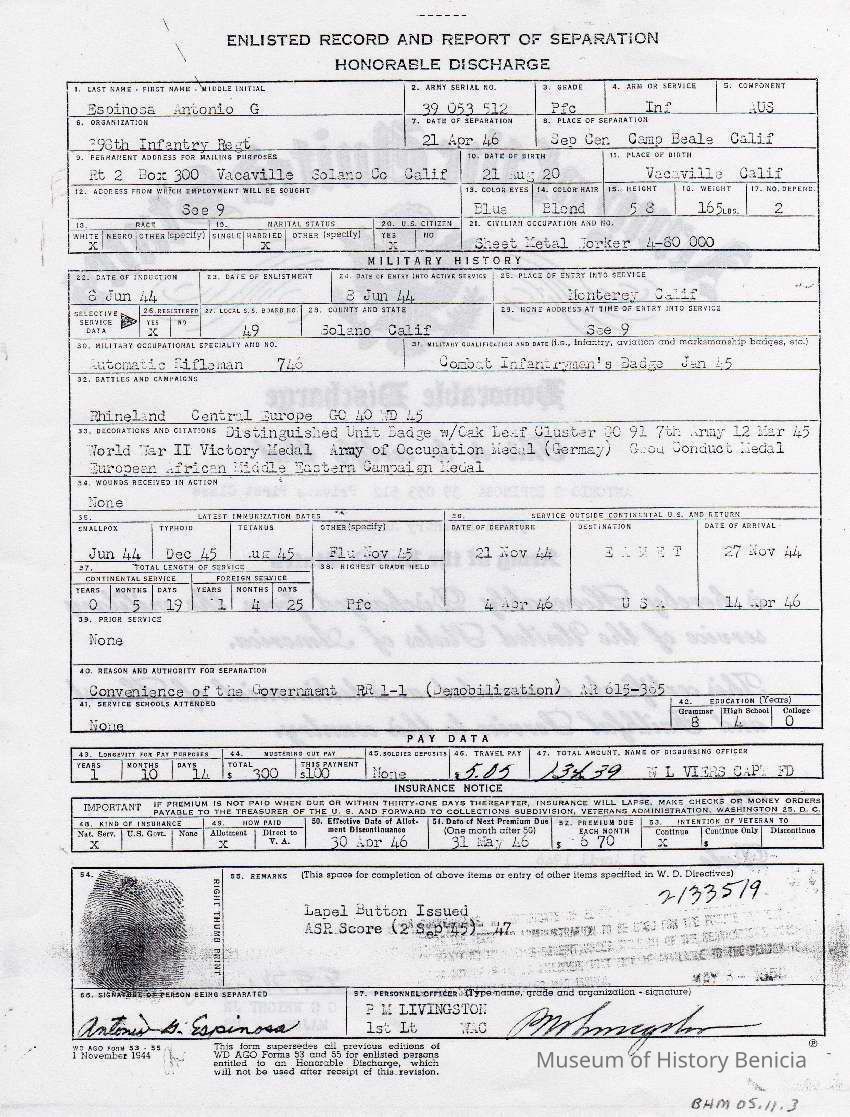 ENLISTED RECORD AND REPORT OF SEPARATION
HONORABLE DISCHARGE
1. LAST NAME - FIRST NAME - MIDDLE INITIAL 2. ARMY SERIAL NO. 3. GRADE 4. ARM OR SERVICE 5. COMPONENT
Espinosa Antonio G 39 053 512 Pfc Inf AUS
6. ORGANIZATION 7. DATE OF SEPARATION 8. PLACE OF SEPARATION
398th Infantry Regt 21 Apr 46 Sep Cen Camp Beale Calif
9. PERMANENT ADDRESS FOR MAILING PURPOSES 10. DATE OF BIRTH 11. PLACE OF BIRTH
Rt 2 Box 300 Vacaville Solano Co Calif 21 Aug 20 Vacaville Calif
12. ADDRESS FROM WHICH EMPLOYMENT WILL BE SOUGHT 13. COLOR EYES 14. COLOR HAIR 15. HEIGHT 16. WEIGHT 17. NO. DEPEND.
See 9 Blue Blond 5 8 165 LBS. 2
18. RACE 19. MARITAL STATUS 20. U.S. CITIZEN 21. CIVILIAN OCCUPATION AND NO.
WHITE NEGRO OTHER (specify) SINGLE MARRIED OTHER (specify) YES NO
X X X Sheet Metal Worker 4-80 000
MILITARY HISTORY
22. DATE OF INDUCTION 23. DATE OF ENLISTMENT 24. DATE OF ENTRY INTO ACTIVE SERVICE 25. PLACE OF ENTRY INTO SERVICE
8 Jun 44 8 Jun 44 Monterey Calif
SELECTIVE SERVICE DATA 26. REGISTERED 27. LOCAL S.S. BOARD NO. 28. COUNTY AND STATE 29. HOME ADDRESS AT TIME OF ENTRY INTO SERVICE
YES NO
X 49 Solano Calif See 9
30. MILITARY OCCUPATIONAL SPECIALTY AND NO. 31. MILITARY QUALIFICATION AND DATE (i.e., infantry, aviation and marksmanship badges, etc.)
Automatic Rifleman 746 Combat Infantrymen's Badge Jan 45
32. BATTLES AND CAMPAIGNS
Rhineland Central Europe GO 40 WD 45
33. DECORATIONS AND CITATIONS Distinguished Unit Badge w/Oak Leaf Cluster GO 91 7th Army 12 Mar 45
World War II Victory Medal Army of Occupation Medal (Germay) Good Conduct Medal
European African Middle Eastern Campaign Medal
34. WOUNDS RECEIVED IN ACTION
None
35. LATEST IMMUNIZATION DATES 36. SERVICE OUTSIDE CONTINENTAL U.S. AND RETURN
SMALLPOX TYPHOID TETANUS OTHER (specify) DATE OF DEPARTURE DESTINATION DATE OF ARRIVAL
Jun 44 Dec 45 Aug 45 Flu Nov 45 21 Nov 44 E A M E T 27 Nov 44
37. TOTAL LENGTH OF SERVICE 38. HIGHEST GRADE HELD
CONTINENTAL SERVICE FOREIGN SERVICE
YEARS MONTHS DAYS YEARS MONTHS DAYS
0 5 19 1 4 25 Pfc 4 Apr 46 U S A 14 Apr 46
39. PRIOR SERVICE
None
40. REASON AND AUTHORITY FOR SEPARATION
Convenience of the Government RR 1-1 (Demobilization) AR 615-365
41. SERVICE SCHOOLS ATTENDED 42. EDUCATION (Years)
Grammar High School College
None 8 4 0
PAY DATA
43. LONGEVITY FOR PAY PURPOSES 44. MUSTERING OUT PAY 45. SOLDIER DEPOSITS 46. TRAVEL PAY 47. TOTAL AMOUNT, NAME OF DISBURSING OFFICER
YEARS MONTHS DAYS TOTAL THIS PAYMENT
1 10 14 $ 300 $100 None $ 5.05 W L VIERS CAPT FD
INSURANCE NOTICE
IMPORTANT IF PREMIUM IS NOT PAID WHEN DUE OR WITHIN THIRTY-ONE DAYS THEREAFTER, INSURANCE WILL LAPSE. MAKE CHECKS OR MONEY ORDERS
PAYABLE TO THE TREASURER OF THE U. S. AND FORWARD TO COLLECTIONS SUBDIVISION, VETERANS ADMINISTRATION, WASHINGTON 25, D. C.
48. KIND OF INSURANCE 49. HOW PAID 50. Effective Date of Allotment Discontinuance 51. Date of Next Premium Due (One month after 50) 52. PREMIUM DUE EACH MONTH 53. INTENTION OF VETERAN TO
Nat. Serv. U.S. Govt. None Allotment Direct to V. A. Continue Continue Only Discontinue
X X 30 Apr 46 31 May 46 $ 6 70 X $
54. RIGHT THUMB PRINT 55. REMARKS (This space for completion of above items or entry of other items specified in W. D. Directives)
2133519
Lapel Button Issued
ASR Score (2 Sep 45) 47
56. SIGNATURE OF PERSON BEING SEPARATED 57. PERSONNEL OFFICER (Type name, grade and organization - signature)
Antonio G. Espinosa
P M LIVINGSTON
1st Lt WAC
WD AGO FORM 53 - 55
1 November 1944
This form supersedes all previous editions of
WD AGO Forms 53 and 55 for enlisted persons
entitled to an Honorable Discharge, which
will not be used after receipt of this revision.
Museum of History Benicia
BHM 05.11.3